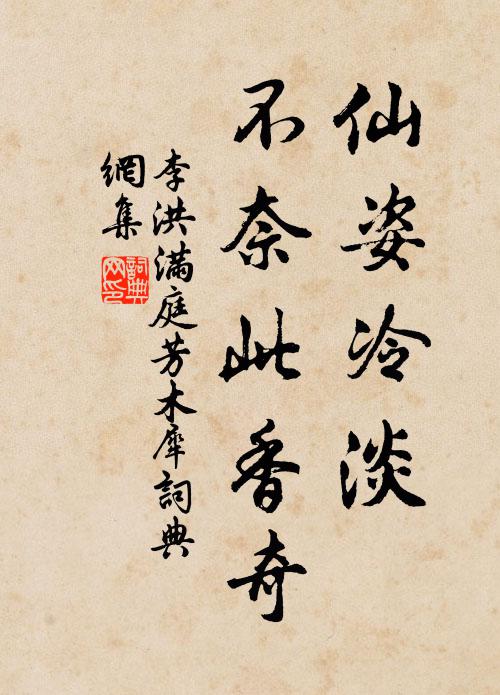 仙姿冷淡
不奈此香奇
李洪滿庭芳木犀詞典
網集
詞典
网印